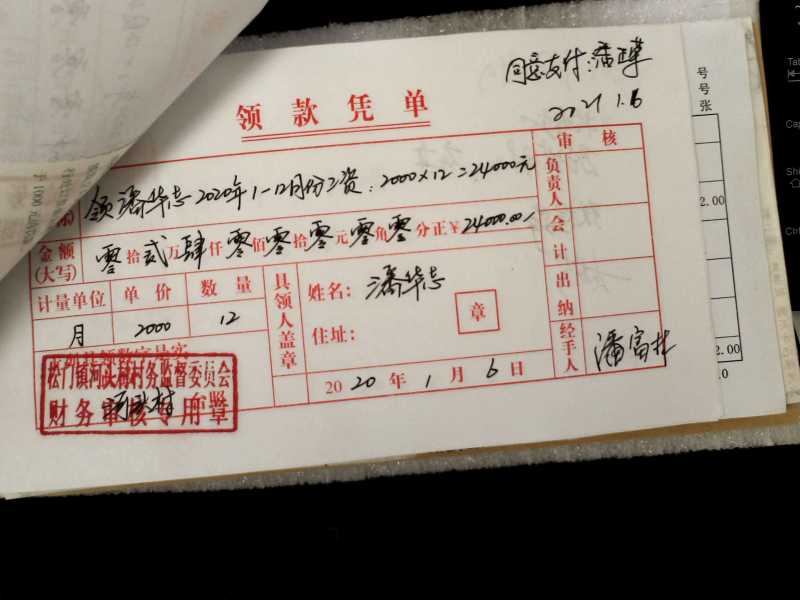 同意支付:潘正华
2021.1.6
领款凭单
领潘华志2020年1-12月份工资:2000×12=24000元
金额(大写) 零拾贰万肆仟零佰零拾零元零角零分正¥24000.00
计量单位 单价 数量
月 2000 12
具领人盖章
姓名:潘华志
住址:
章
2020年1月6日
审核
负责人
会计
出纳
经手人 潘富林
松门镇河头村村务监督委员会
财务审核专用章
号
号
张
2.00
2.00
.0
Tab